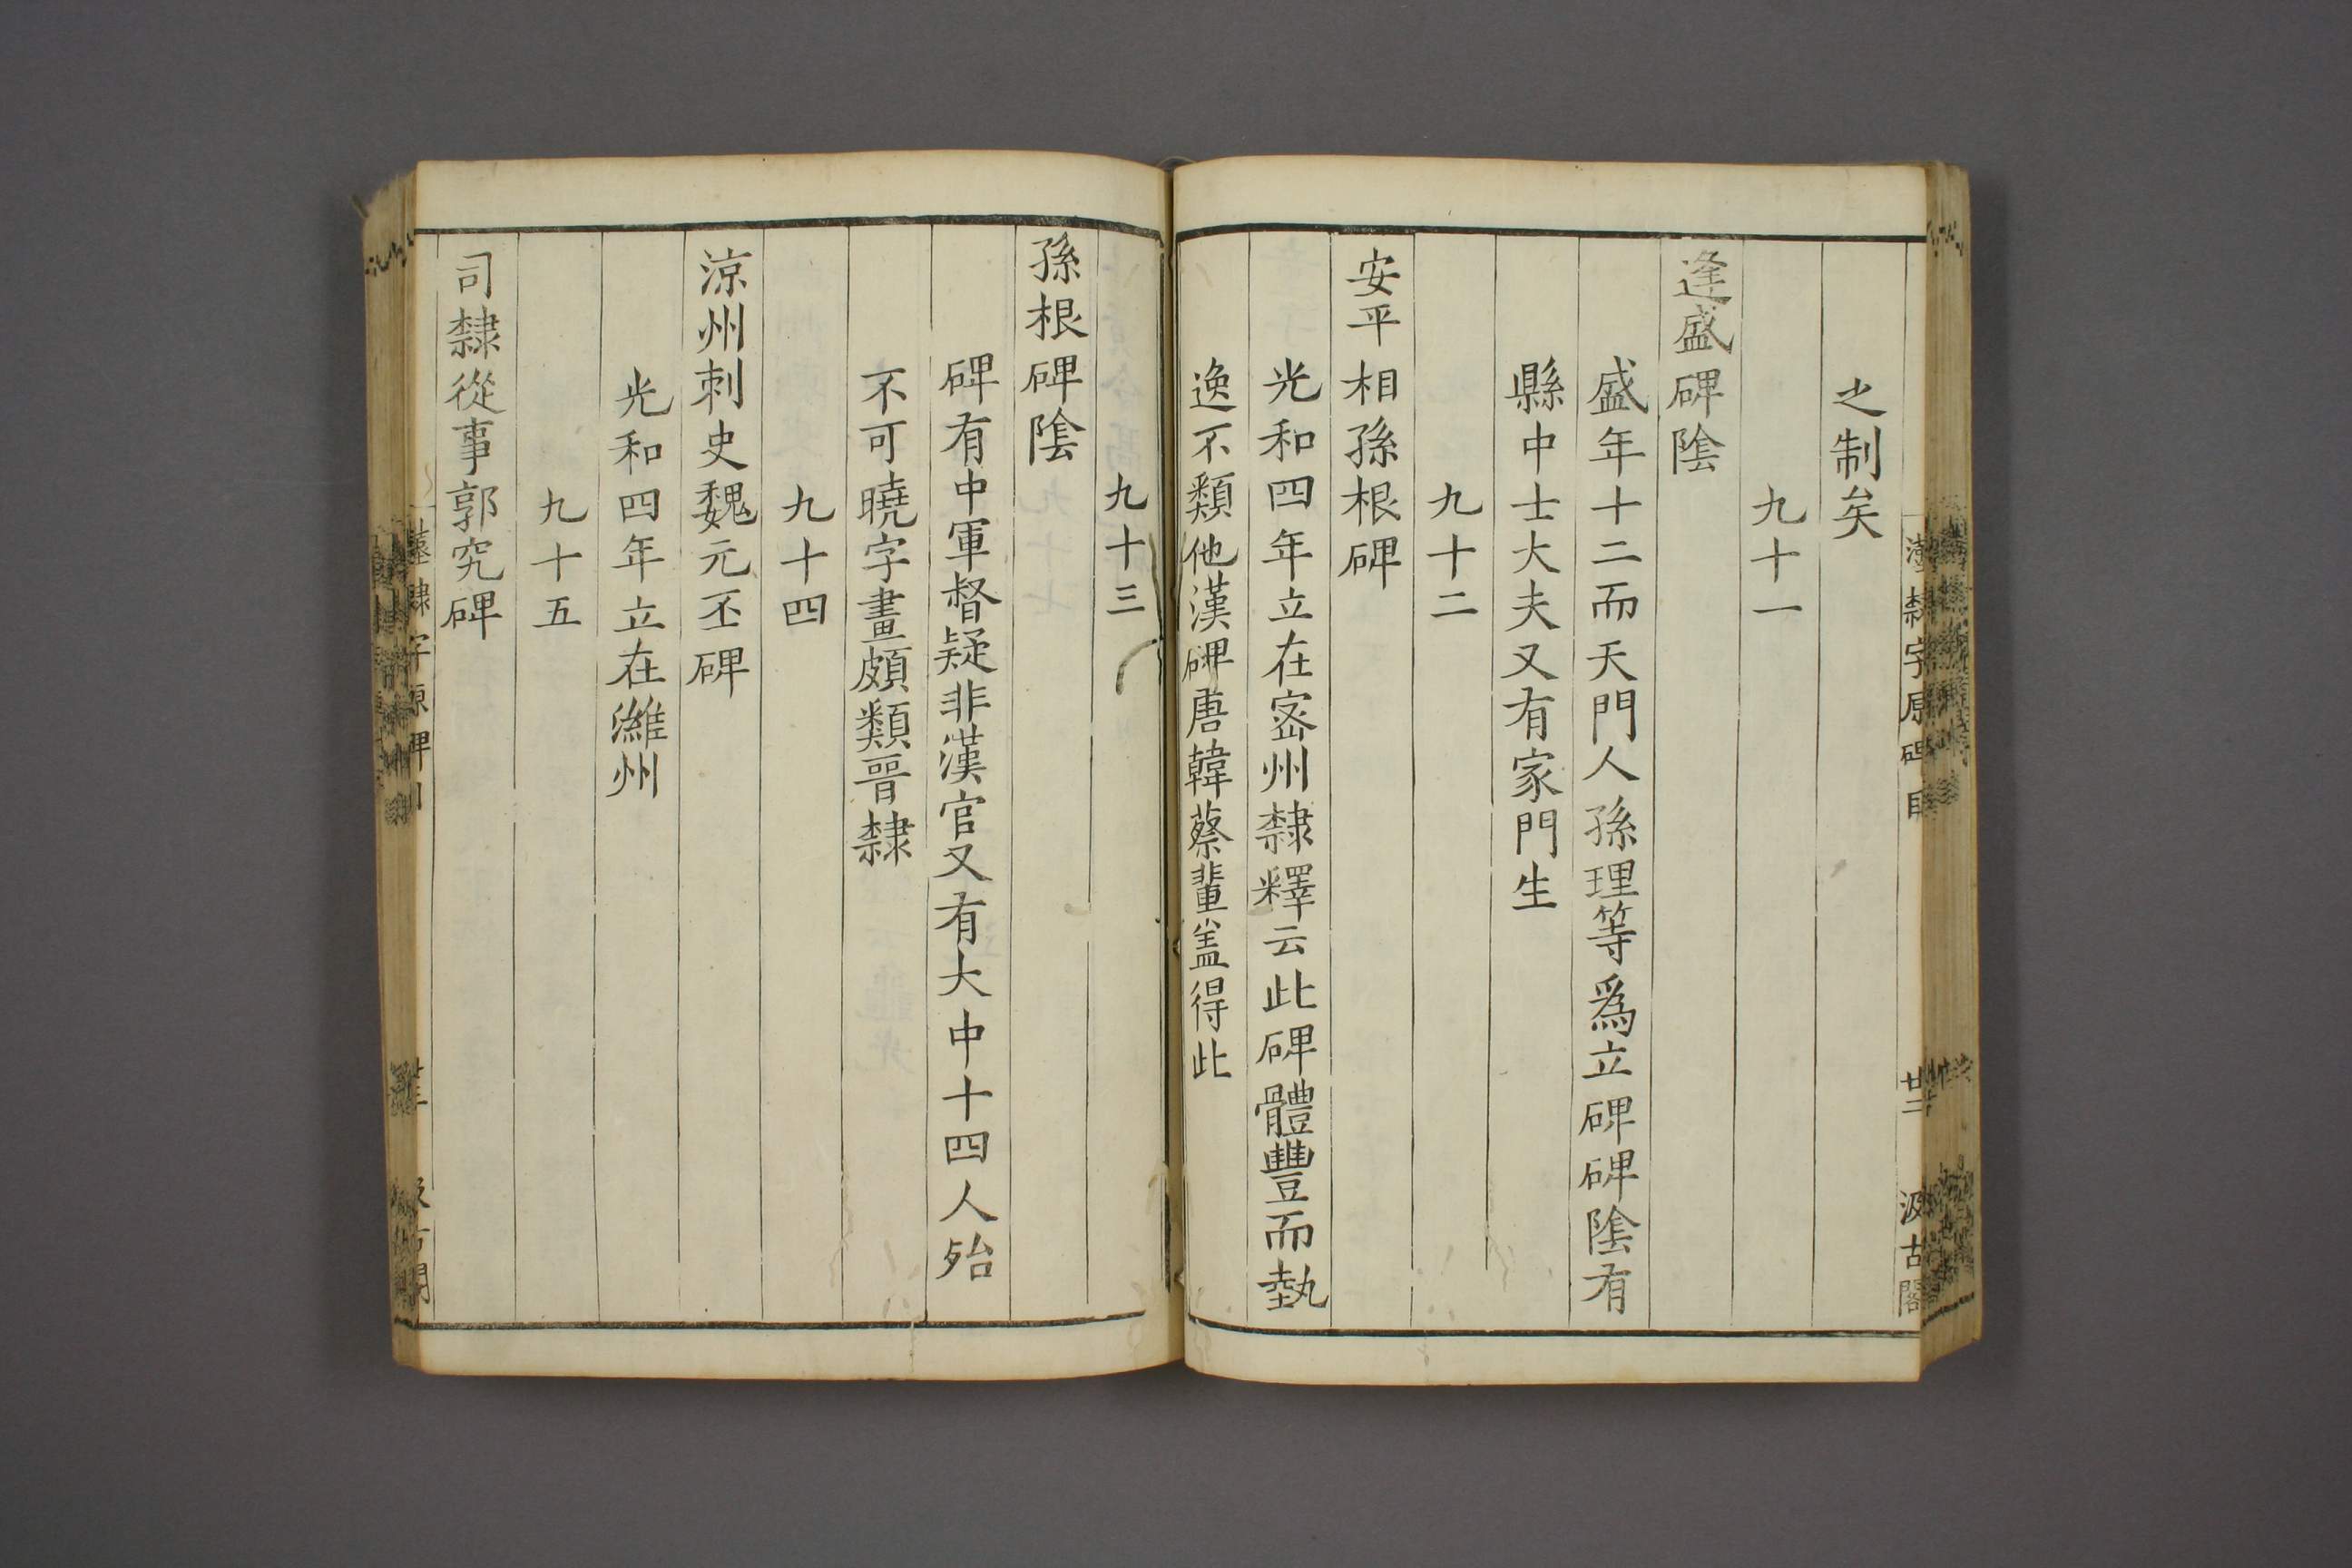 之制矣
九十一
逢盛碑隂
盛年十二而天門人孫理等爲立碑碑隂有
縣中士大夫又有家門生
九十二
安平相孫根碑
光和四年立在宻州隸釋云此碑體豐而埶
逸不類他漢碑唐韓蔡輩盖得此
九十三
孫根碑隂
碑有中軍督疑非漢官又有大中十四人殆
不可曉字畫頗類晉隸
九十四
涼州刺史魏元丕碑
光和四年立在濰州
九十五
司隸從事郭究碑
漢隸字原碑目
廿二
汲古閣